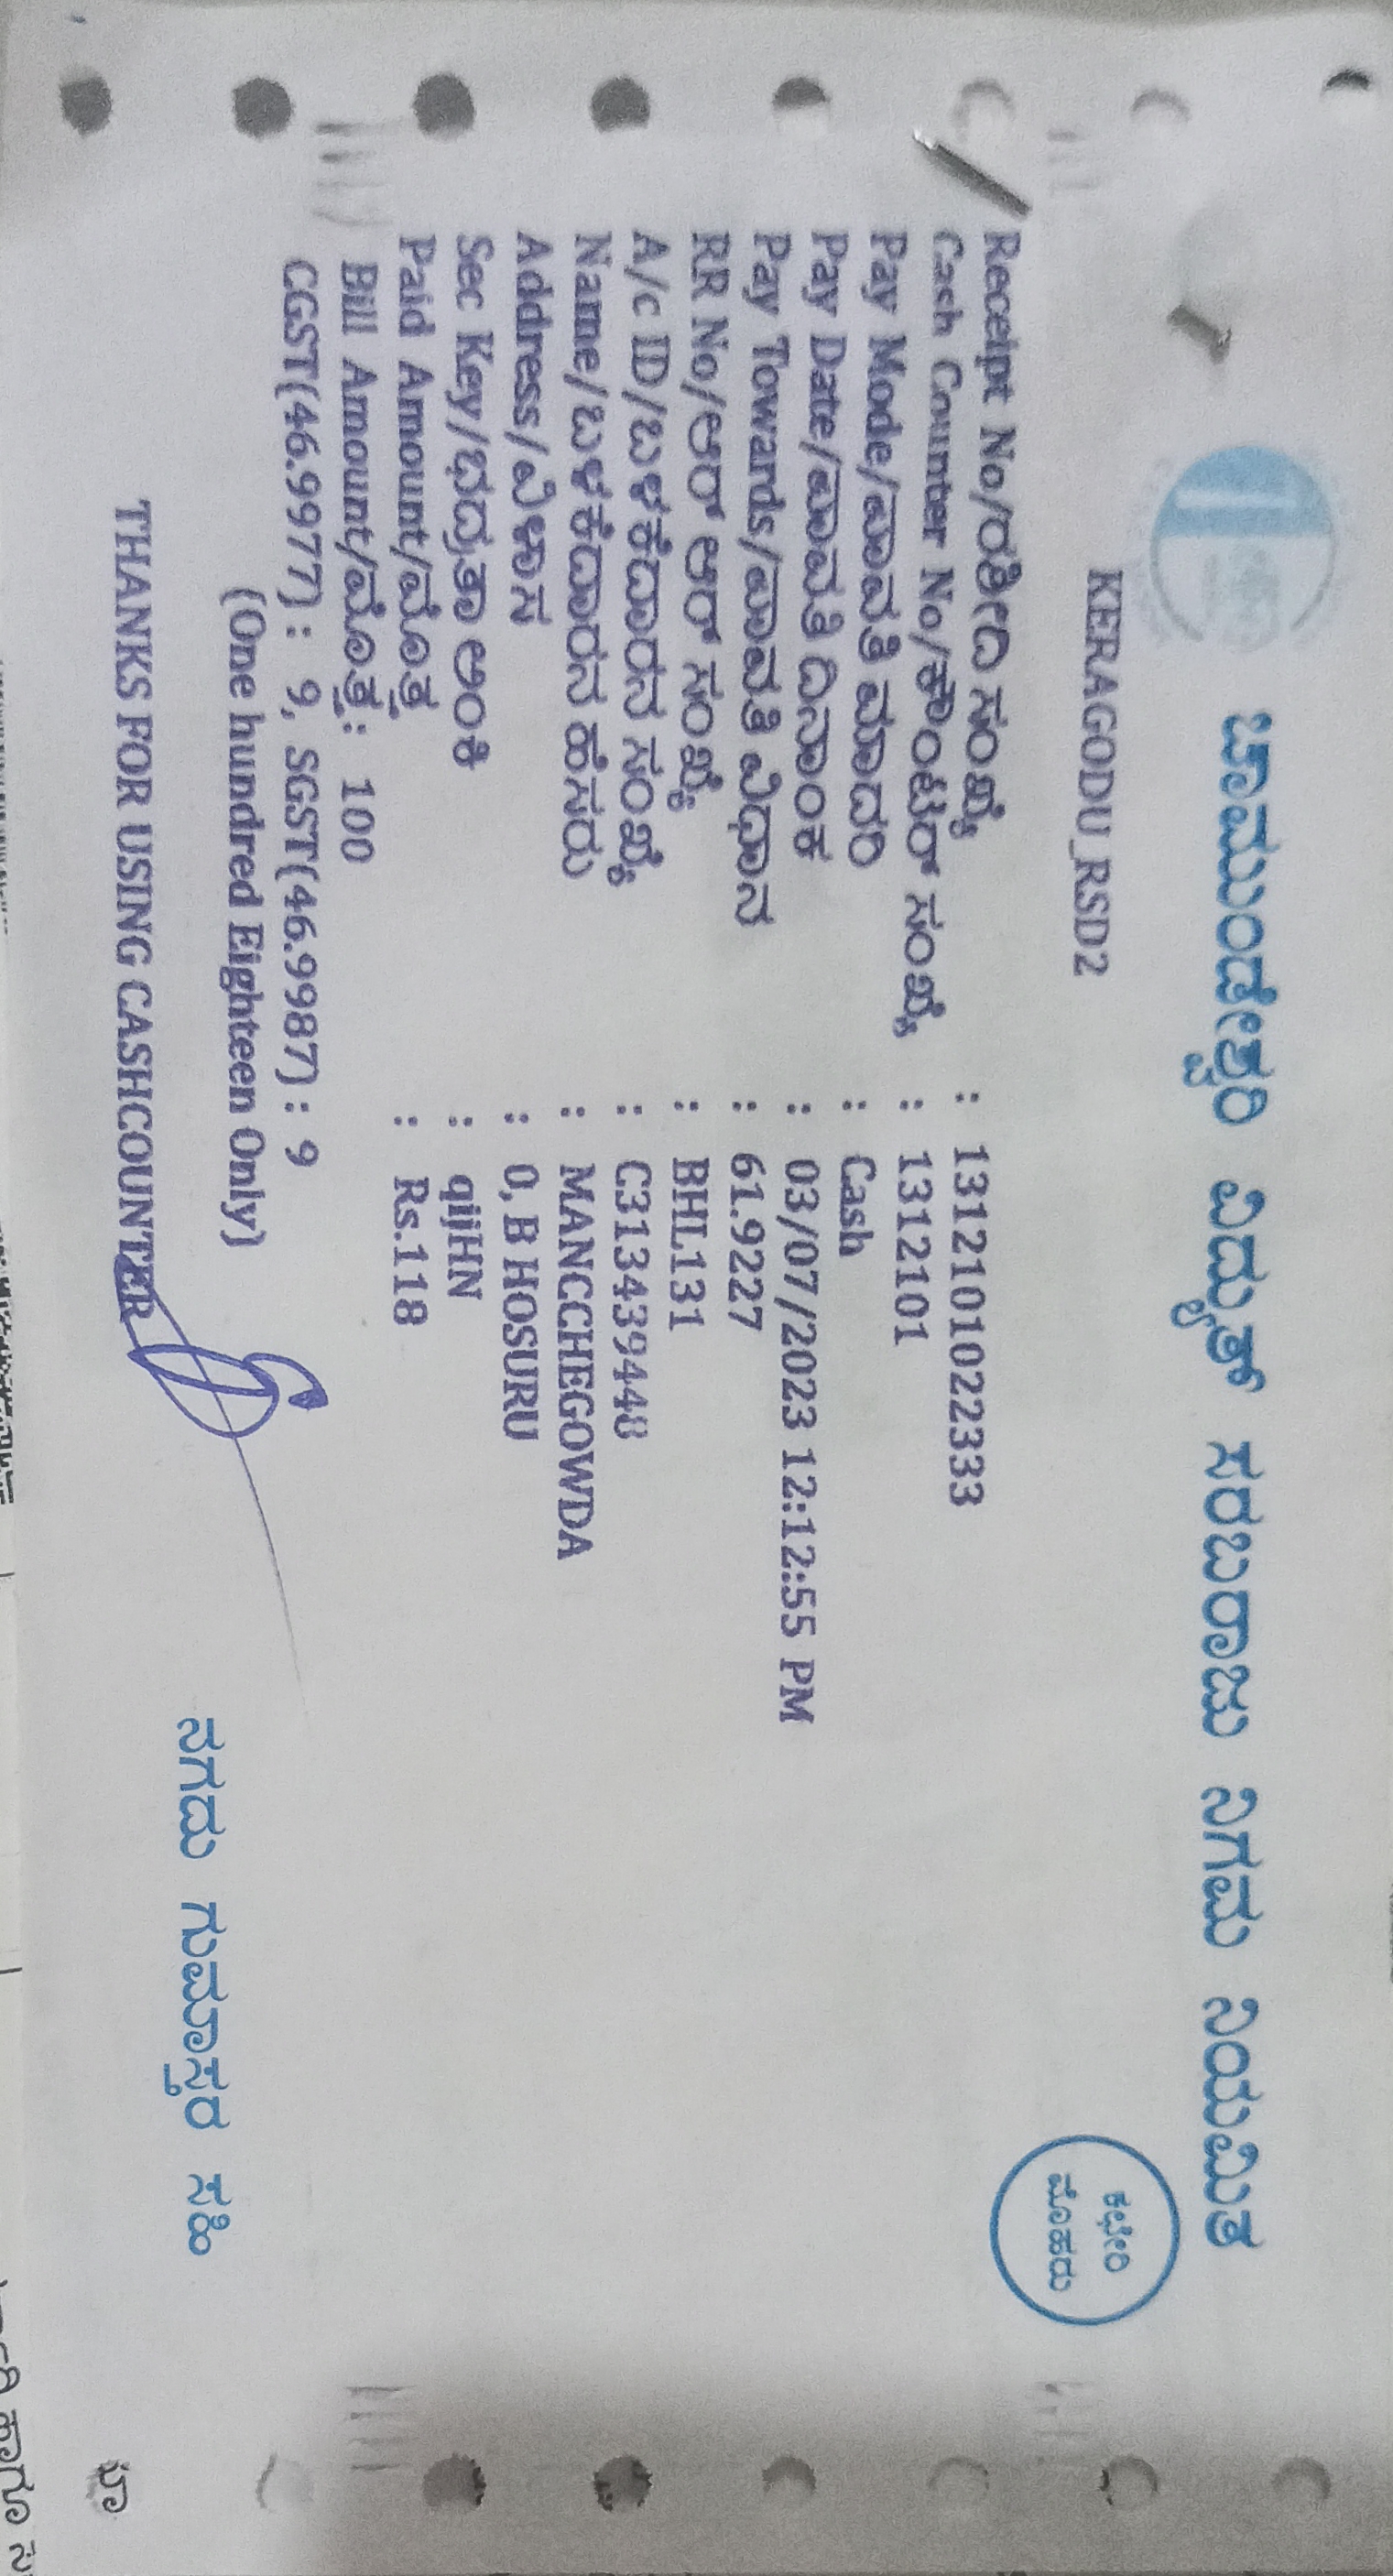 ಚಾಮುಂಡೇಶ್ವರಿ ವಿದ್ಯುತ್ ಸರಬರಾಜು ನಿಗಮ ನಿಯಮಿತ
KERAGODU_RSD2
ಕಛೇರಿ
ಮೊಹರು
Receipt No/ರಶೀದಿ ಸಂಖ್ಯೆ : 1312101022333
Cash Counter No/ಕೌಂಟರ್ ಸಂಖ್ಯೆ : 1312101
Pay Mode/ಪಾವತಿ ಮಾದರಿ : Cash
Pay Date/ಪಾವತಿ ದಿನಾಂಕ : 03/07/2023 12:12:55 PM
Pay Towards/ಪಾವತಿ ವಿಧಾನ : 61.9227
RR No/ಆರ್ ಆರ್ ಸಂಖ್ಯೆ : BHL131
A/c ID/ಬಳಕೆದಾರನ ಸಂಖ್ಯೆ :
Name/ಬಳಕೆದಾರನ ಹೆಸರು : MANCCHEGOWDA
Address/ವಿಳಾಸ : 0, B HOSURU
Sec Key/ಭದ್ರತಾ ಅಂಕಿ : qijHN
Paid Amount/ಮೊತ್ತ : Rs.118
Bill Amount/ಮೊತ್ತ : 100
CGST(46.9977) : 9, SGST(46.9987) : 9
(One hundred Eighteen Only)
THANKS FOR USING CASHCOUNTER
ನಗದು ಗುಮಾಸ್ತರ ಸಹಿ